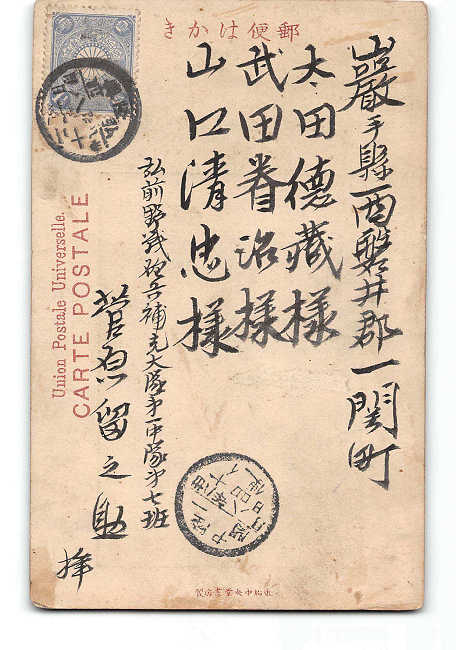 郵便はかき
巖手縣西磐井郡一関町
太田德藏様
武田眷治様
山口清忠様
弘前野戦砲兵補充大隊第一中隊第七班
菅原留之助
拝
Union Postale Universelle.
CARTE POSTALE